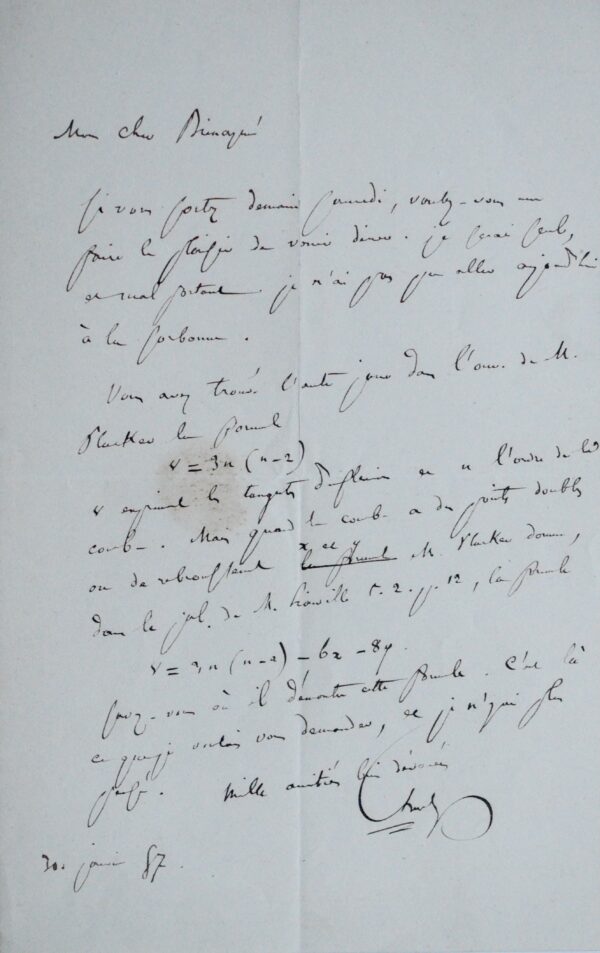 Mon cher Bienaymé
Si vous sortez demain samedi, voulez-vous me
faire le plaisir de venir dîner. Je serai seul,
et mal portant. Je n'ai pas pu aller aujourd'hui
à la Sorbonne.
Vous avez trouvé l'autre jour dans l'ouv. de M.
Plucker la formule
v = 3n (n-2)
v exprimant les tangentes d'inflexion et n l'ordre de la
courbe. Mais quand la courbe a des points doubles
ou de rebroussement x et y la formule M. Plucker donne,
dans le jal. de M. Liouville t. 2. p. 12, la formule
v = 3n (n-2) - 6x - 8y.
Savez-vous où il démontre cette formule. C'est là
ce que je voulais vous demander, et je n'y ai plus
pensé. Mille amitiés bien dévouées
Chasles
30. 57.